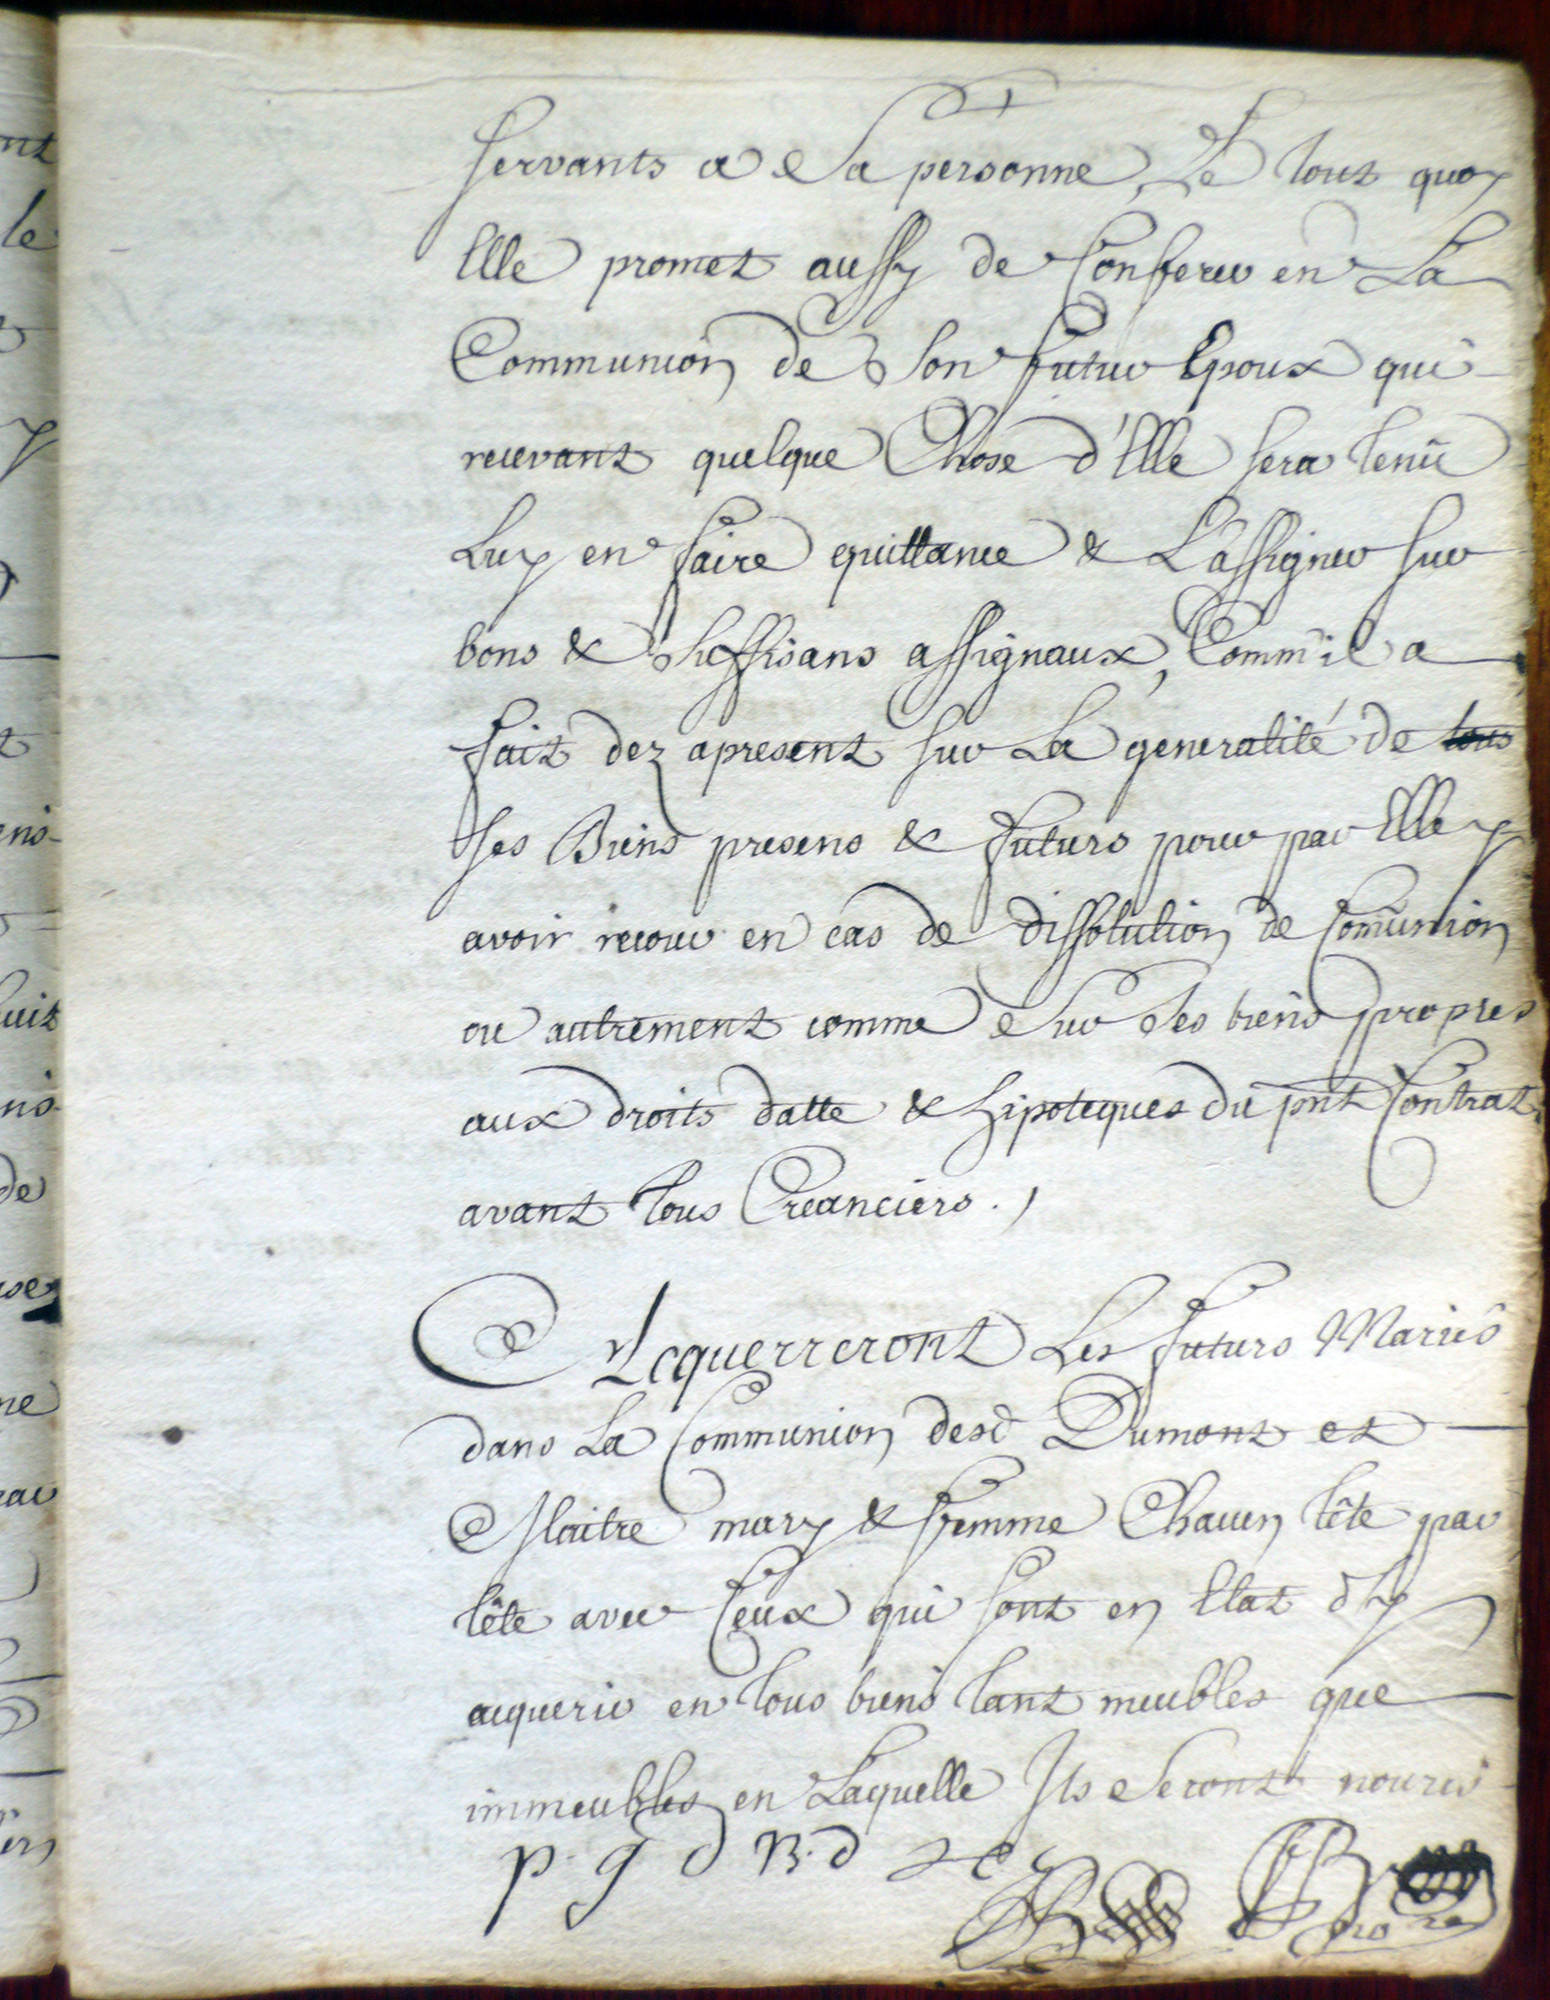 servants a Sa personne, Le tout quoy
Elle promet aussy de Conferer en La
Communion de Son futur Epoux qui
recevant quelque Chose d'Elle sera tenu
Luy en faire quittance & L'assigner sur
bons & suffisans assignaux, Comm'il a
fait dez apresent sur La generalité de tous
ses Biens presens & futurs pour par Elle y
avoir recour en cas de dissolution de Comunion
ou autrement comme Sur Ses biens propres
aux droits datte & hipoteques du pnt Contrat
avant tous Creanciers.
Acquerreront Les futurs Mariés
dans La Communion desd Dumont et
Maitre mary & femme Chacun tête par
tête avec Ceux qui sont en Etat d'y
acquerir en tous biens tant meubles que
immeubles en Laquelle Ils Seront nouris
p. g d B. d